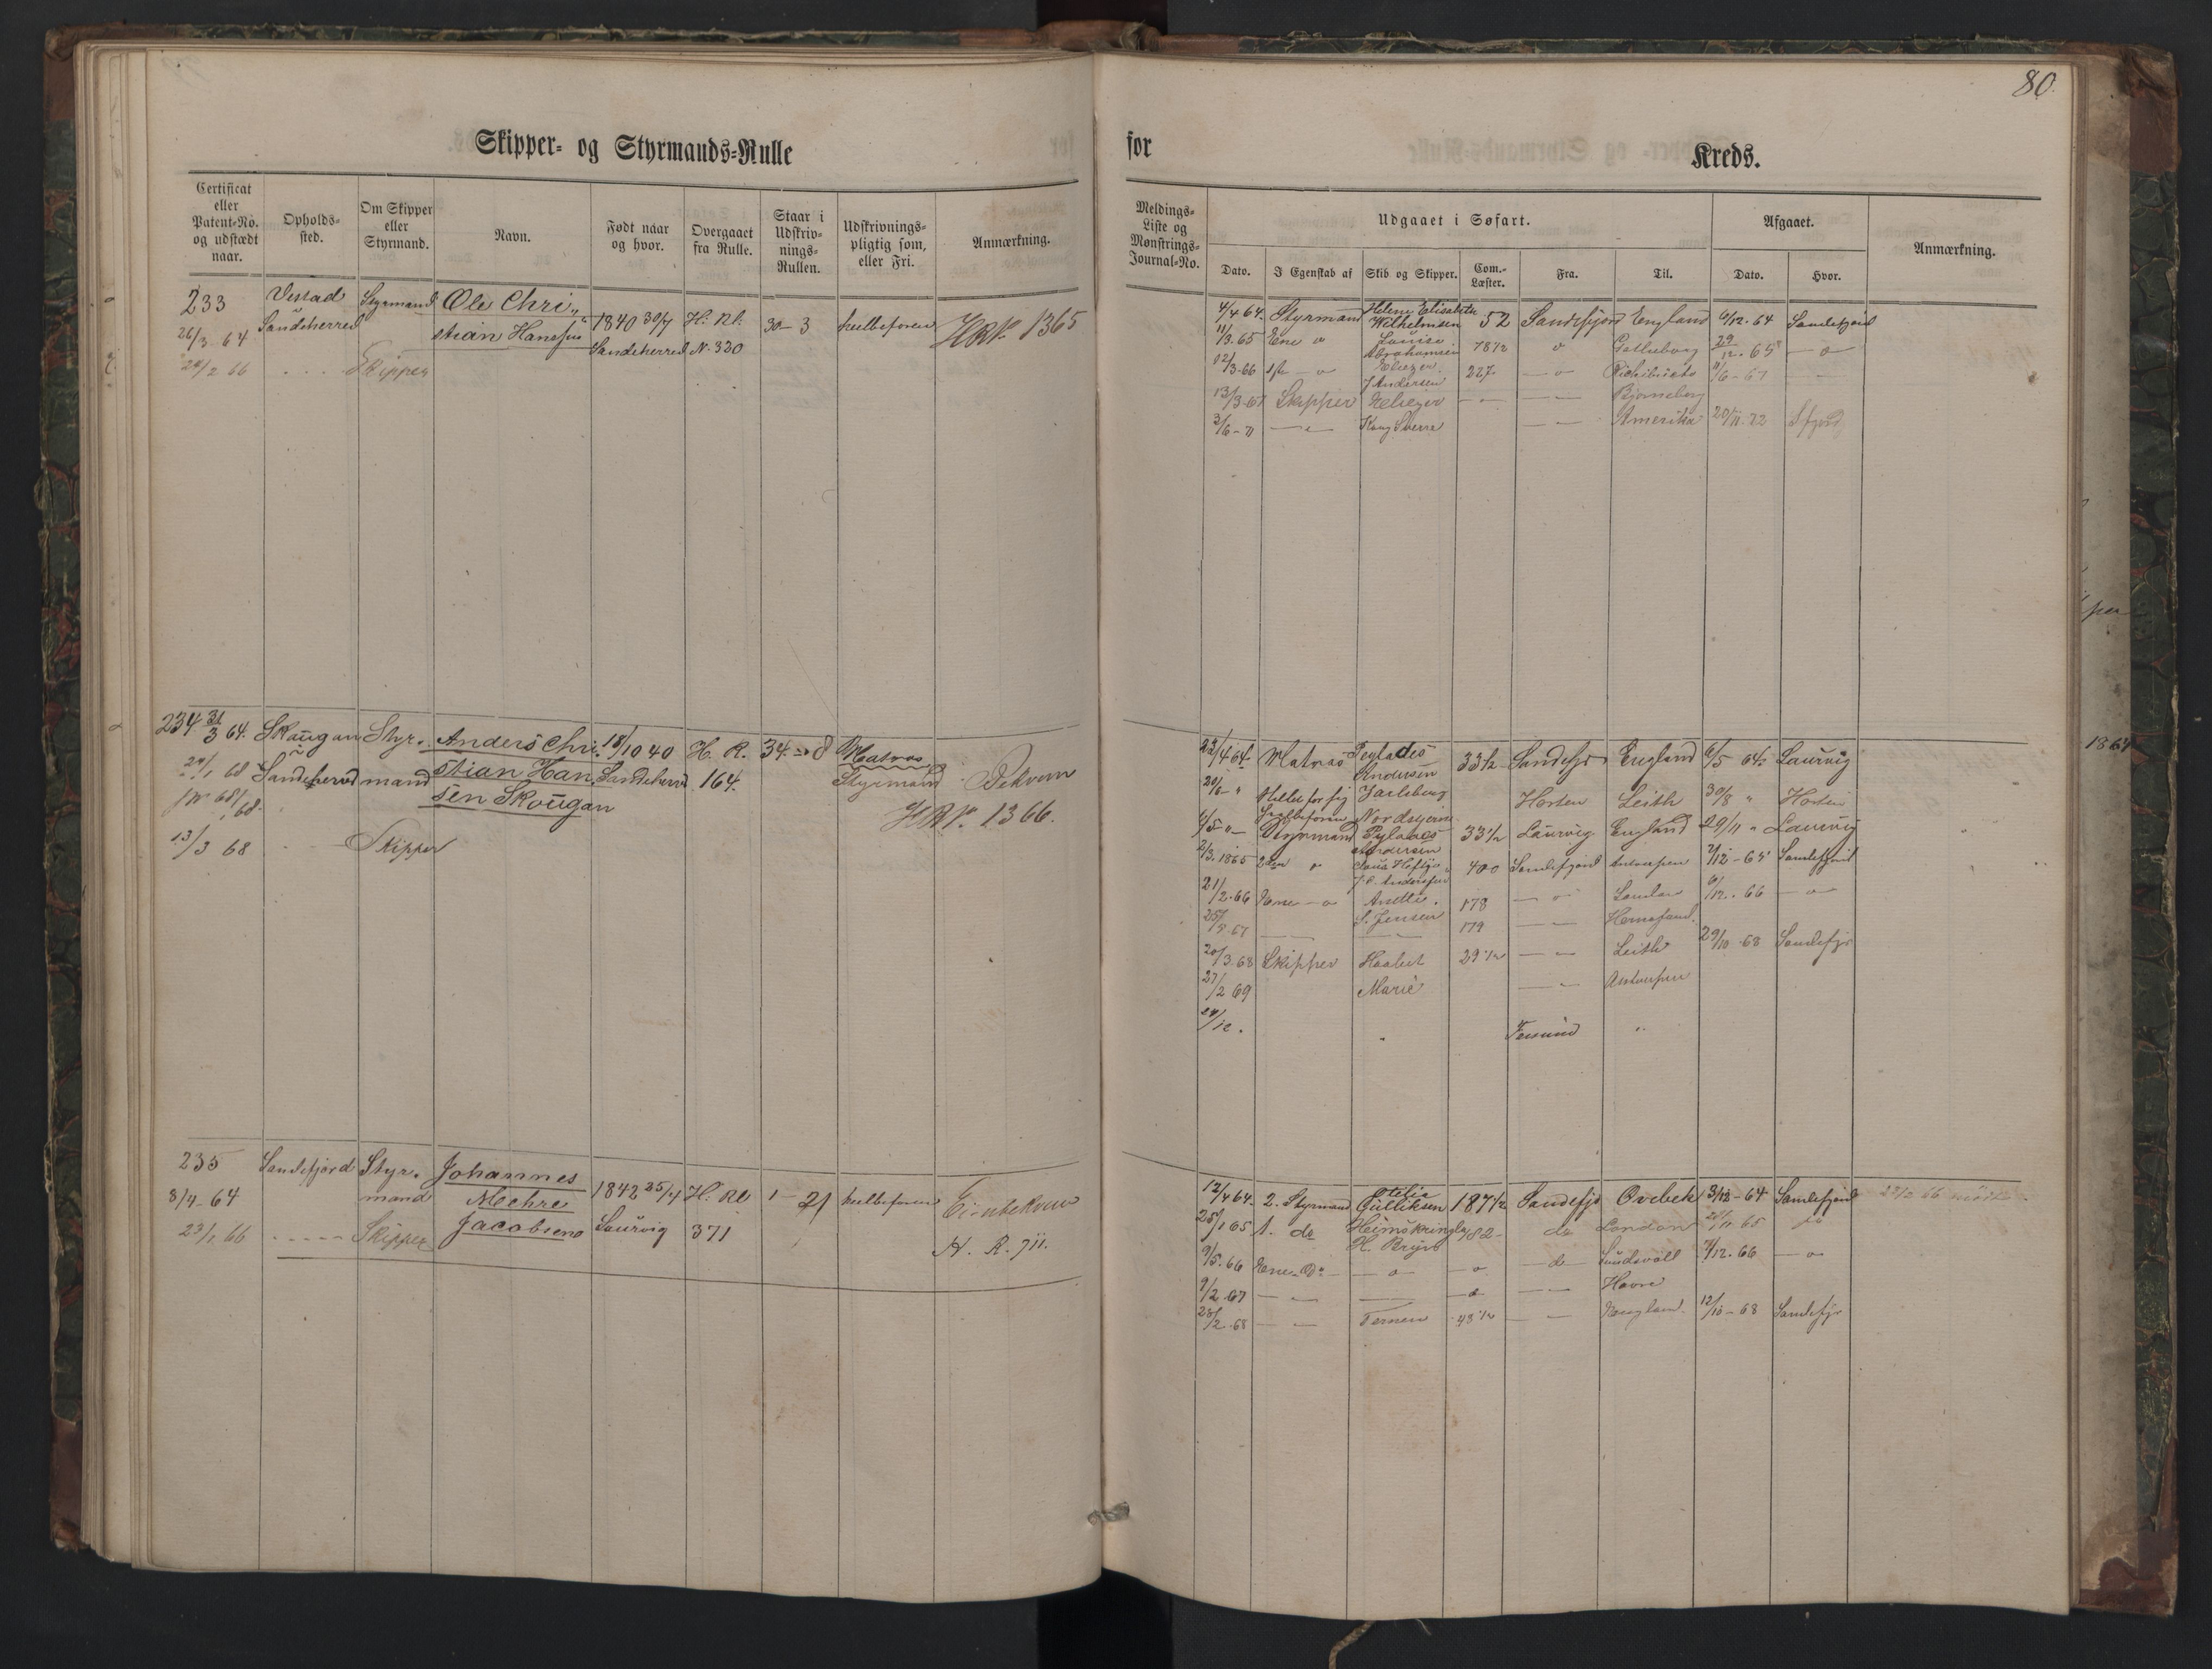 80.
Skipper- og Styrmands-Rulle
for
Kreds.
Certificat eller Patent-No. og udstædt naar.
Opholds-sted.
Om Skipper eller Styrmand.
Navn.
Født naar og hvor.
Overgaaet fra Rulle.
Staar i Udskriv-nings-Rullen.
Udskrivnings-pligtig som, eller Fri.
Anmærkning.
Meldings-Liste og Mønstrings-Journal-No.
Udgaaet i Søfart.
Afgaaet.
Anmærkning.
Dato.
I Egenskab af
Skib og Skipper.
Com.-Læster.
Fra.
Til.
Dato.
Hvor.
233 Vestad Styrmand Ole Chri-
26/3 64 Sandeherred stian Hansen 1840 30/7 H. Rl. 30-3 heelbefaren HRNo. 1365
Sandeherred N. 320
24/2 66 Skipper
4/4 64. Styrmand Helene Elisabeth
Wilhelmsen 52 Sandefjord England 6/12. 64 Sandefjord
11/3. 65 Ene Louise
Abrahamsen 78 1/2 29/12. 65
12/3-66 Eliezer 227.
J Andersen 11/6-67
13/3-67 Skipper Eliezer Bjørneborg
3/6-71 Kong Sverre Amerika 20/11.72 Sfjord
234 31/3 64. Skaugan Styr- Anders Chri- 18/10 40 H. R. 34-8 Matros
24/1 68 Sandeherred mand stian Han- Sandeherred 164. Styrmand Bekvem
sen Skougan
HRNo. 1366.
13/3 68 Skipper
23/4 64 Matros Pylades
Andersen 33 1/2 Sandefjd England 6/5 64. Laurvig
Jarlsberg Horten Leith 30/8 " Horten
Styrmand Pylades 33 1/2 Laurvig England 29/11 " Laurvig
Andersen
2/3. 1865 2den 400 Sandefjord Antwerpen 7/12-65 Sandefjord
J. C. Andersen
21/2-66 Ene 178 London 6/12. 66
S. Jensen
179
20/3 68 Skipper Haabet 29 1/2 Leith 29/10-68 Sandefjd
27/2 69 Marie Antwerpen
235 Sandefjord Styr- Johannes
8/4-64 mand Mehre 1842 25/4 H. Rl 1-21 heelbefaren
23/1 66 Skipper Jacobsen Laurvig 371
H. R. 711.
12/4 64. 2. Styrmand Otelie
Gulliksen 187 1/2 Sandefjd Qvebek 3/12-64 Sandefjord
25/1 65 1. do Heimskringla 182 do London 65
9/5. 66 Ene do do Sundsvall 7/12. 66
9/2-67 Havre
28/2-68 Ternen 48 1/2 England. 12/10-68 Sandefjd